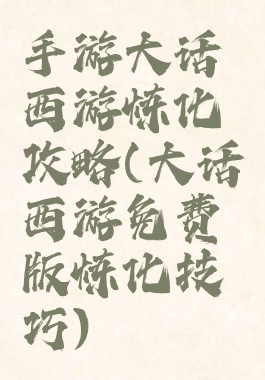 手游大话
西游炼化
攻略(大话
西游免费
版炼化技
巧)